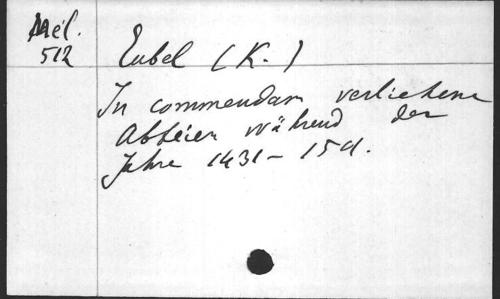 Mél.
512
Eubel (K.)
In commendam verliehene
Abteien während der
Jahre 1431-